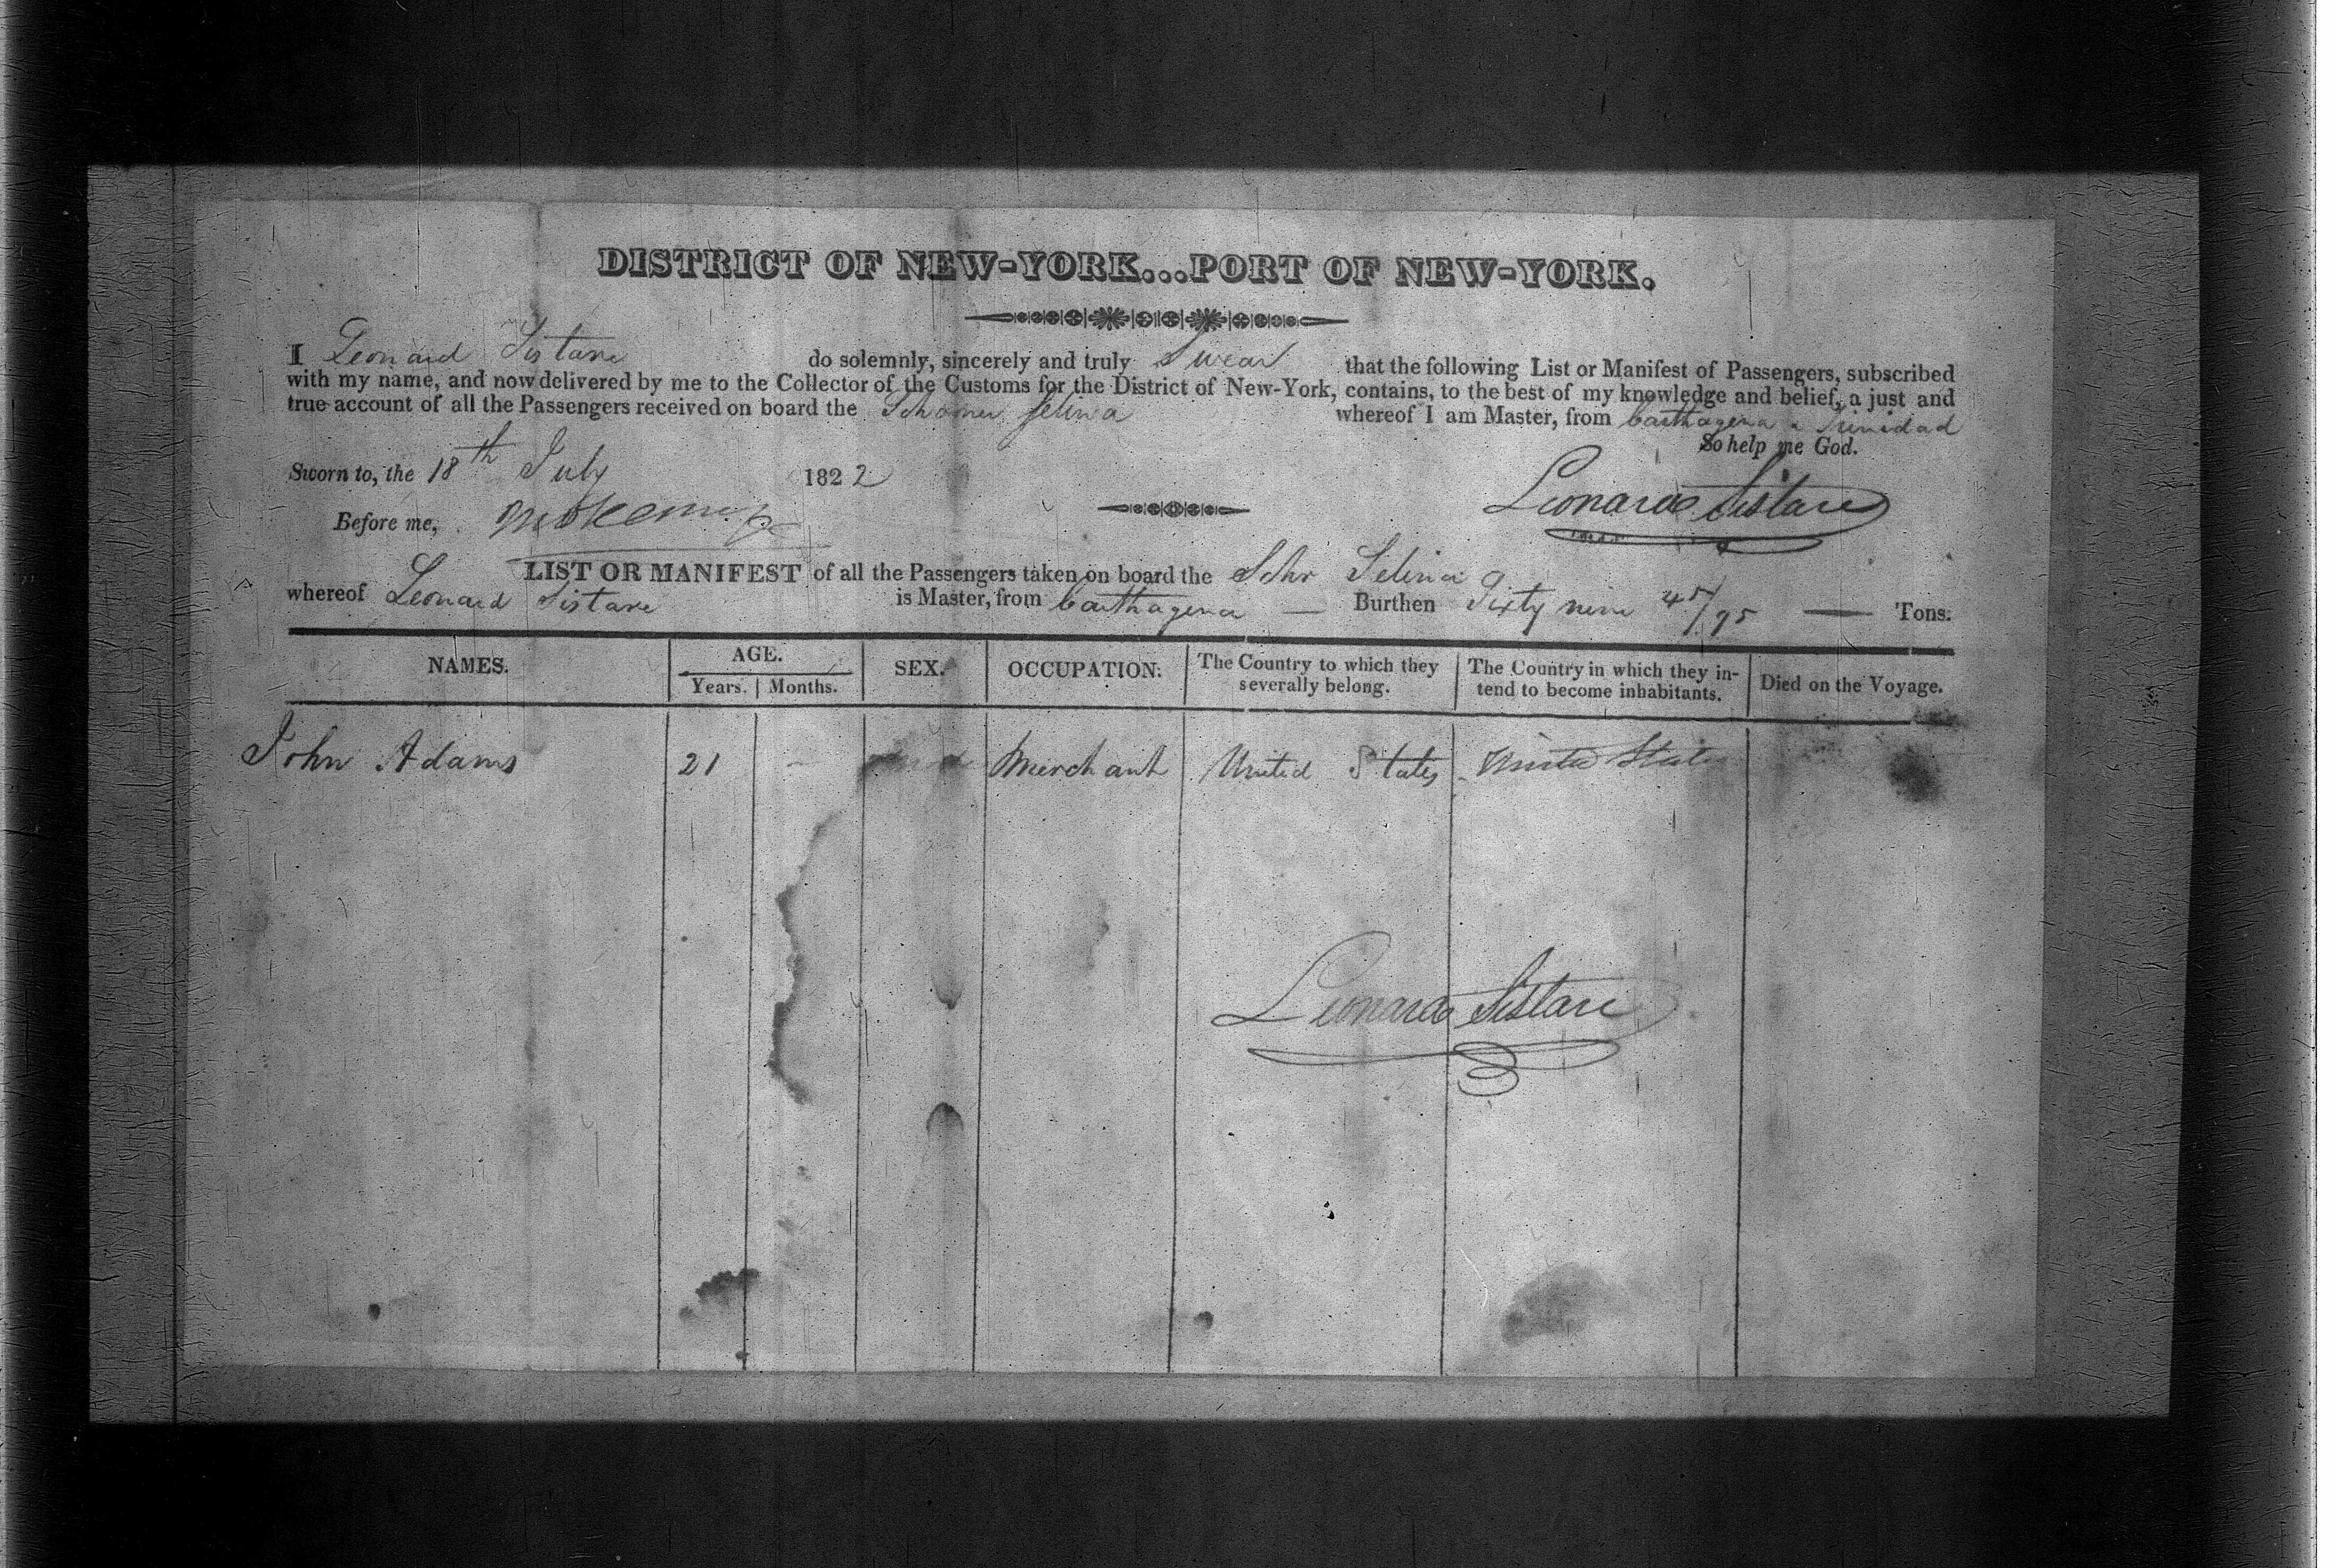 DISTRICT OF NEW-YORK...PORT OF NEW-YORK.
I Leonard Sistare do solemnly, sincerely and truly Swear that the following List or Manifest of Passengers, subscribed
with my name, and now delivered by me to the Collector of the Customs for the District of New-York, contains, to the best of my knowledge and belief, a just and
true account of all the Passengers received on board the Schooner Selina whereof I am Master, from Carthagena & Trinidad
So help me God.
Sworn to, the 18th July 1822
Leonard Sistare
Before me,
LIST OR MANIFEST of all the Passengers taken on board the Schr Selina
whereof Leonard Sistare is Master, from Carthagena — Burthen Sixty nine 45/95 — Tons.
NAMES. AGE. SEX. OCCUPATION. The Country to which they severally belong. The Country in which they in-tend to become inhabitants. Died on the Voyage.
Years. Months.
John Adams 21 - Merchant United States United States
Leonard Sistare